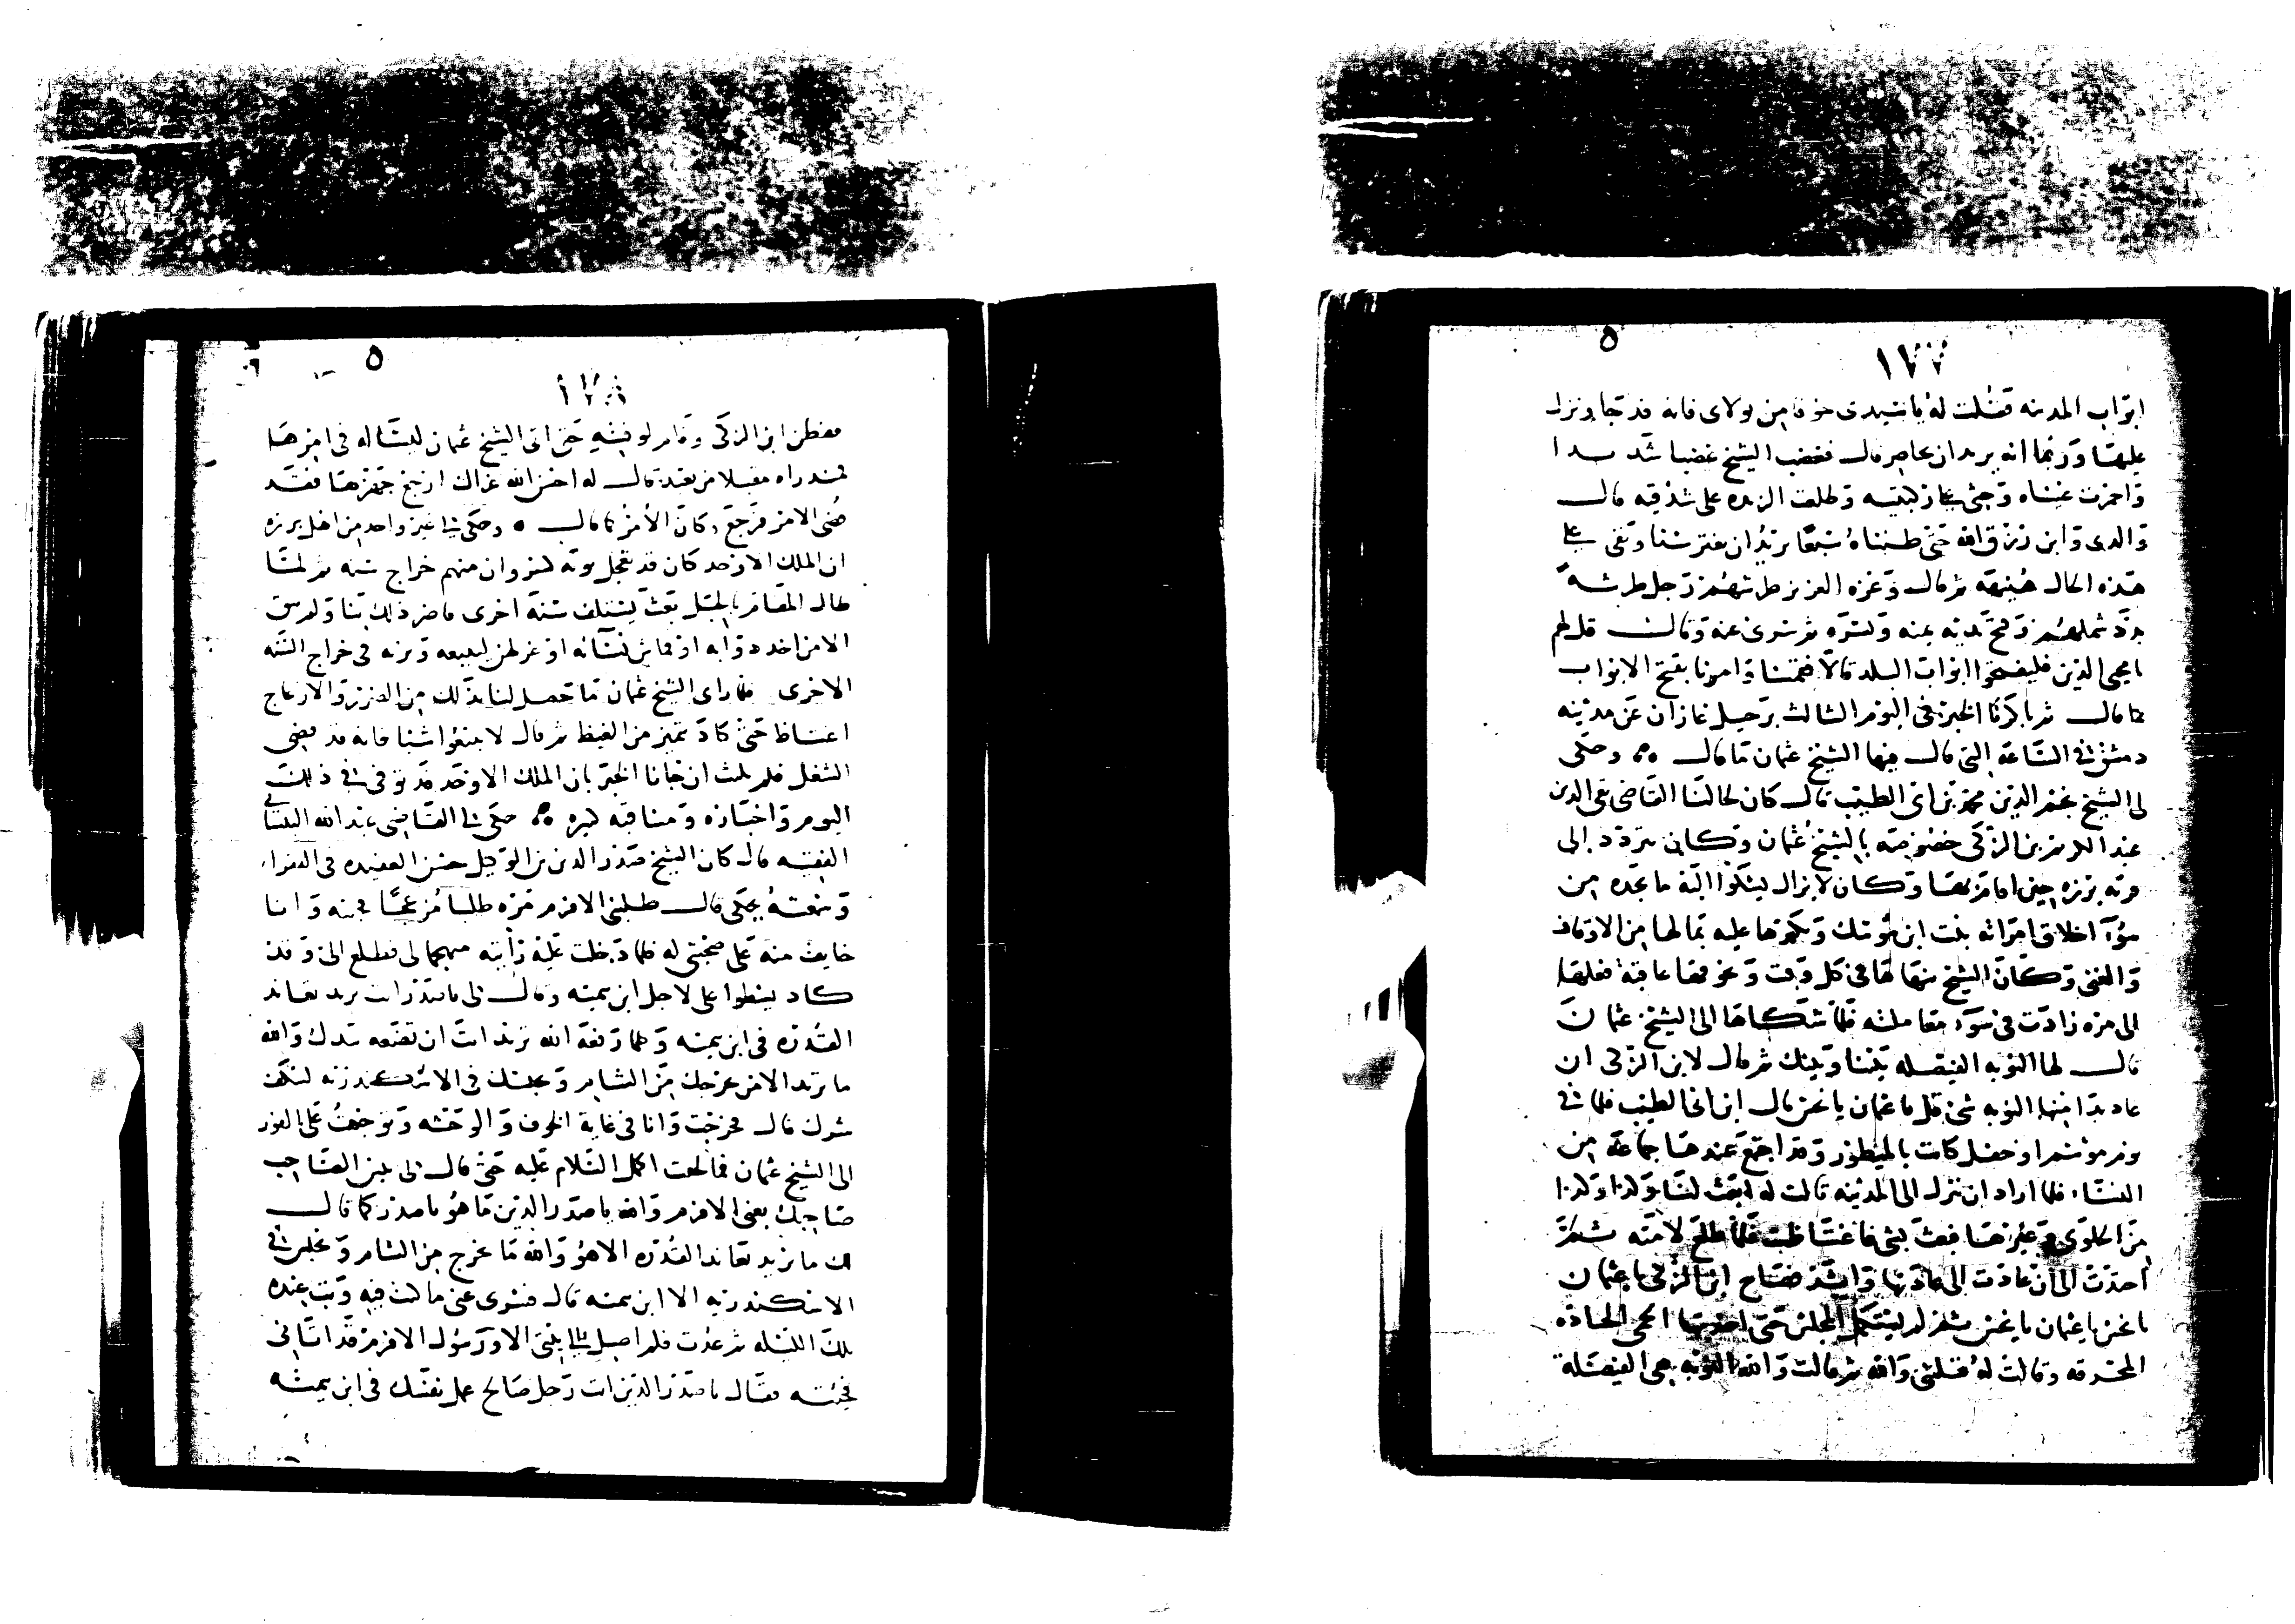 ١٧٧
ابواب المدينه فقلت له يا سيدى خوفا من بولاى فانه قد تجاوز نزل
عليها وربما انه يريد ان يحاصر قال فغضب الشيخ غضبا شديدا
واحمرت عيناه وجثى على ركبتيه وطلعت الزبده على شدقيه قال
والدى وابن رزق الله حتى ظنناه سبعا يريد ان يفترسنا وبقى على
هذه الحال هنيهة ثم قال وعزة العزيز طرشهم رجل طرشة
بدد شملهم وفتح يديه يمنه ويسره ثم سرى عنه وقال قل لهم
يا محيى الدين فليفتحوا ابواب البلد قالا فقمنا وامرنا بفتح الابواب
كما قال ثم باكرنا الخبر فى اليوم الثالث برحيل غازان عن مدينه
دمشق فى الساعة التى قال فيها الشيخ عثمان ما قال ٥٥ وحكى
لى الشيخ نجم الدين محمد بن ابى الطيب قال كان لخالنا القاضى تقى الدين
عبد الكريم بن الزكى خصوصية بالشيخ عثمان وكان يتردد الى
قرية برزه حين اقامته بها وكان لا يزال يشكوا اليه ما يجده من
سوء اخلاق امراته بنت ابن وتكبرها عليه بمالها من الاوقاف
والغنى وكان الشيخ ينهاها فى كل وقت ويخوفها عاقبة فعلها
الى مره زادت فى سوء معاملته فلما شكاها الى الشيخ عثمان
قال لها النوبه الفيصله بيننا وبينك ثم قال لابن الزكى ان
عاد بدا منها النوبه شى قل يا عثمان يا نحس قال ابن ابى الطيب فلما فى
يوم موسم او حفل كانت بالميطور وقد اجتمع عندها جماعة من
النساء فلما اراد ان ينزل الى المدينه قالت له ابعث لنا ولدا ولدا
من الحلوى وغيرها فبعث بشى فاغتاظت فلما طلع لامته ثم
اخذت الى ان عادت الى عادتها واشد فصاح ابن الزكى يا عثمان
يا نحس يا عثمان يا نحس ثم لم يستكمل المجلس حتى اخذتها الحمى الحاده
المحرقه وقالت له قتلتنى والله ثم قالت والله النوبه هى الفيصلة
١٧٨
ففطن ابن الزكى وقام لوقته حتى اتى الشيخ عثمان ليساله فى امرها
فمنذ راه مقبلا من بعيد قال له احسن الله عزاك ارجع جهزها فقد
قضى الامر فرجع وكان الأمر كما قال ٥ وحكى لى غير واحد من اهل برزه
ان الملك الاوحد كان قد تعجل موته لسروان منهم خراج سنه ثم لما
طال المقام بالجبل بعث يستلف سنة اخرى فاضر ذلك بنا ولم يبق
الا من اخذ دوابه او قماش نسائه او غزلهن ليبيعه ويزنه فى خراج السنه
الاخرى فلما راى الشيخ عثمان ما حصل لنا بذلك من الضرر والازعاج
اغتاظ حتى كاد يتميز من الغيظ ثم قال لا تبيعوا شيا فانه قد قضى
الشغل فلم يلبث ان جانا الخبر بان الملك الاوحد قد توفى فى ذلك
اليوم واخباره ومناقبه كثيره ٥٥ حكى لى القاضى عبد الله
الفقيه قال كان الشيخ صدر الدين بن الوكيل حسن العقيده فى الفقراء
وسمعته يحكى قال طلبنى الافرم مره طلبا مزعجا فجيته وانا
خايف منه على صحبتى له فلما دخلت عليه رايته متهجما لى فطلع الى وقد
كاد يسطوا على لاجل ابن تيميه وقال لى يا صدر انت تريد تعاند
القدره فى ابن تيميه وكلما رفعه الله تريد انت ان تضعه بيدك والله
ما تريد الا من يخرجك من الشام ويحبسك فى الاسكندريه لينكف
شرك قال فخرجت وانا فى غاية الخوف والوحشه وتوجهت على الفور
الى الشيخ عثمان فما لحقت اكمل السلام عليه حتى قال لى بئس الصاحب
صاحبك يعنى الافرم والله يا صدر الدين ما هو يا صدر كما قال
لك ما يريد يعاند القدره الا هو والله ما يخرج من الشام ويحبس فى
الاسكندريه الا ابن تيميه قال فسرى عنى ما كنت فيه وبت عنده
تلك الليله ثم عدت فلم اصل الى بيتى الا ورسول الافرم قد اتانى
فجيته فقال يا صدر الدين انت رجل صالح عمل نفسك فى ابن تيميه